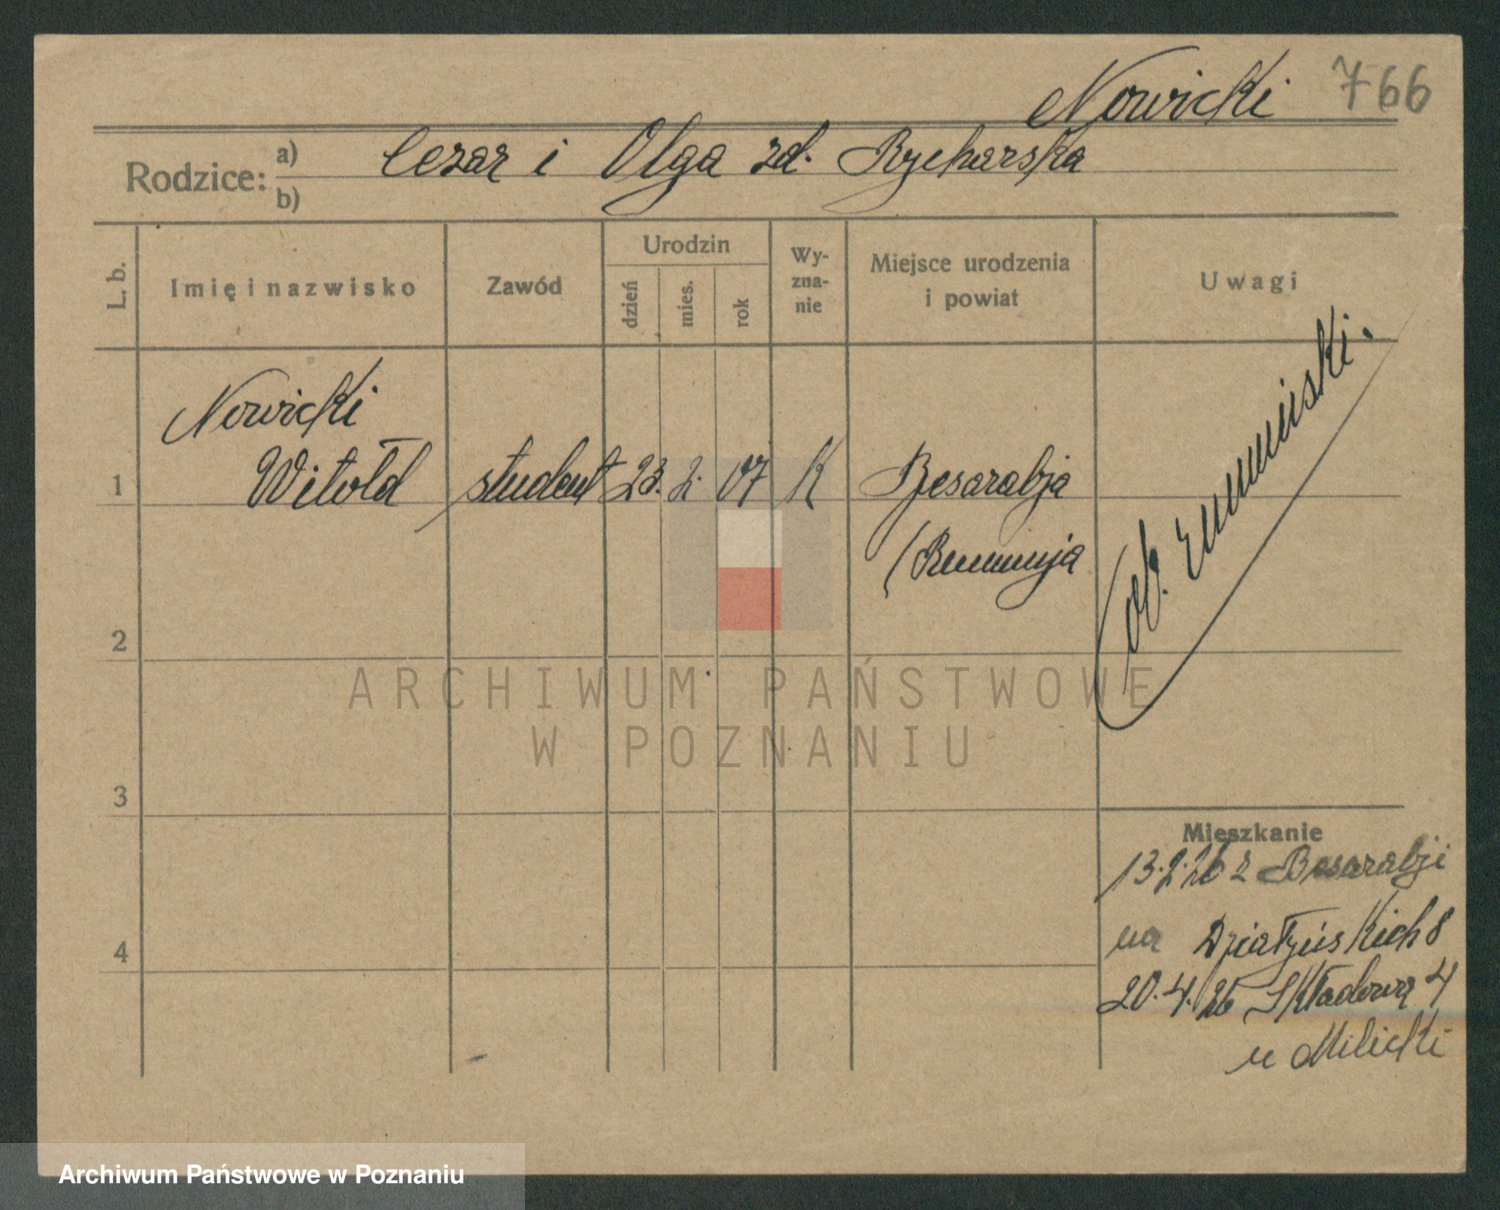 Nowicki 766
Rodzice: a) Cezar i Olga zd. Rycharska
b)
L. b. Imię i nazwisko Zawód Urodzin dzień mies. rok Wy-zna-nie Miejsce urodzenia i powiat Uwagi
Nowicki
1 Witołd student 23. 2. 07 K Besarabja
(Rumunja
ob. rumuński.
2
ARCHIWUM PAŃSTWOWE
W POZNANIU
3
Mieszkanie
13.2.26 z Besarabji
na Działyńskich 8
4
20.4.26 Składowa 4
u Milicki
Archiwum Państwowe w Poznaniu